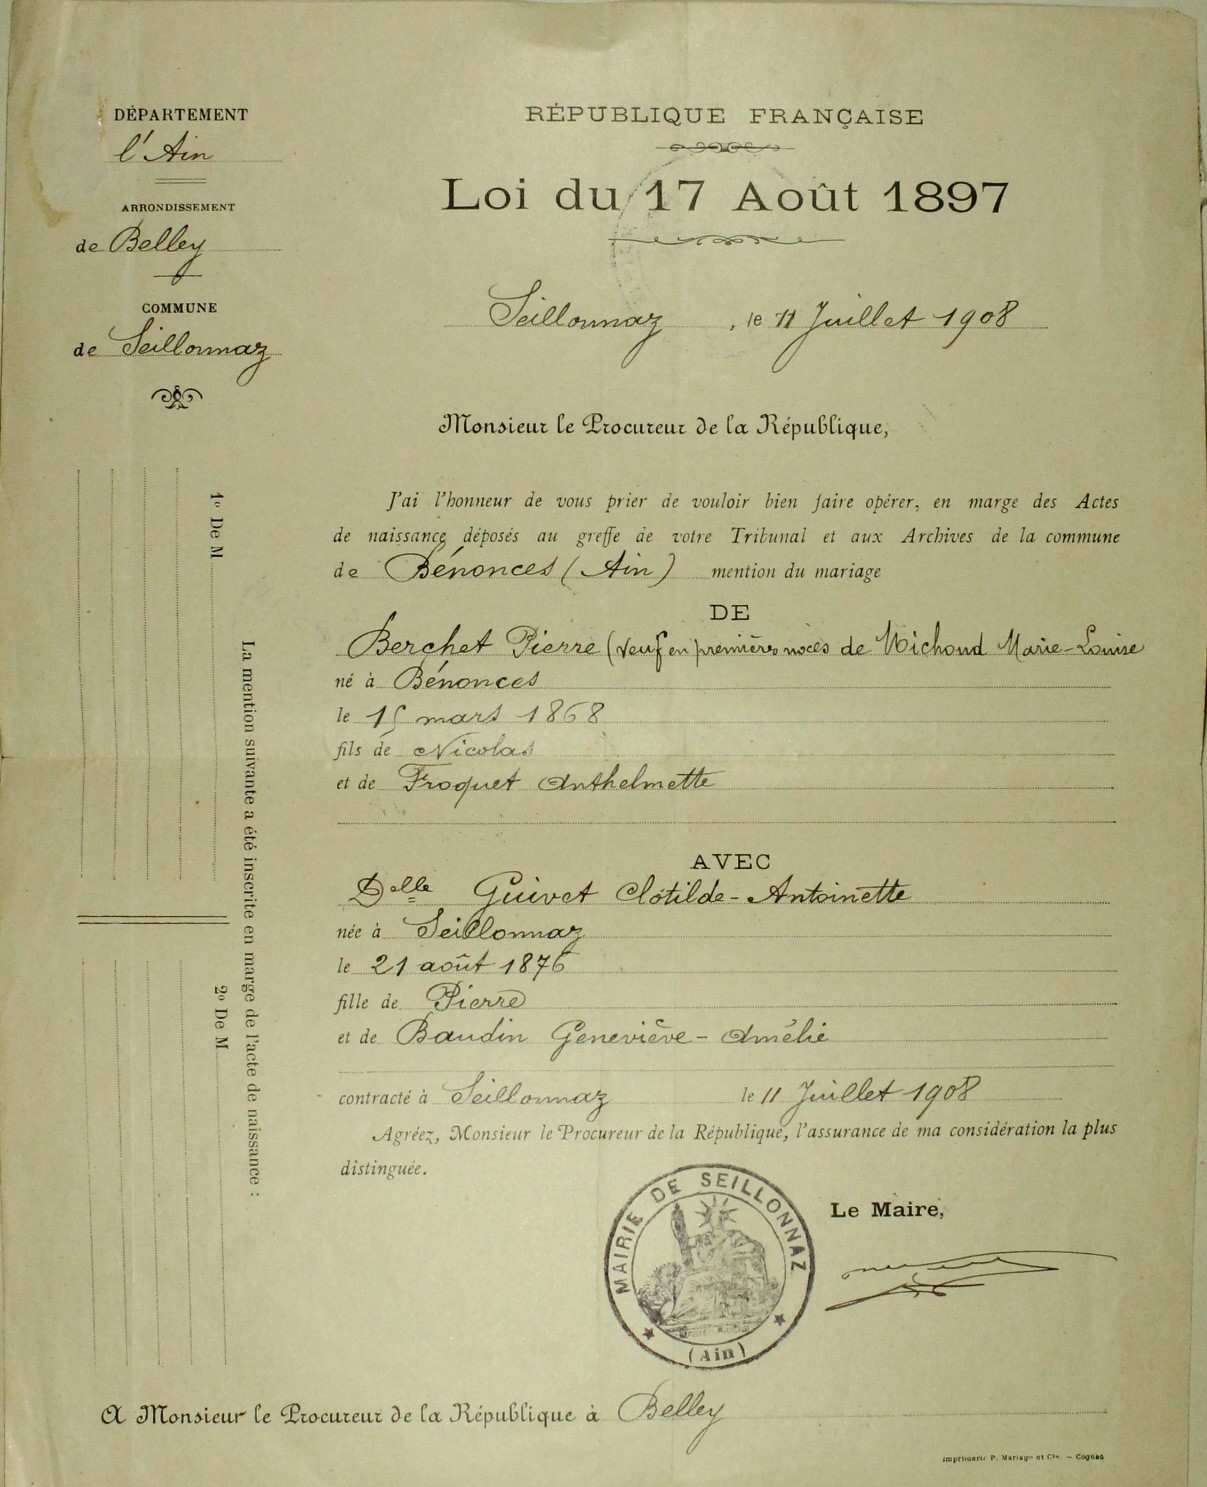 DÉPARTEMENT
l'Ain
ARRONDISSEMENT
de Belley
COMMUNE
de Seillonnaz
RÉPUBLIQUE FRANÇAISE
Loi du 17 Août 1897
Seillonnaz, le 11 Juillet 1908
Monsieur le Procureur de la République,
J'ai l'honneur de vous prier de vouloir bien faire opérer, en marge des Actes
de naissance déposés au greffe de votre Tribunal et aux Archives de la commune
de Bénonces (Ain) mention du mariage
DE
Berchet Pierre (veuf en premières noces de Michoud Marie-Louise
né à Bénonces
le 15 mars 1868
fils de Nicolas
et de Froquet Anthelmette
AVEC
Delle Guivet Clotilde-Antoinette
née à Seillonnaz
le 21 août 1876
fille de Pierre
et de Baudin Geneviève-Amélie
contracté à Seillonnaz le 11 Juillet 1908
Agréez, Monsieur le Procureur de la République, l'assurance de ma considération la plus
distinguée.
Le Maire,
MAIRIE DE SEILLONNAZ
(Ain)
A Monsieur le Procureur de la République à Belley
Imprimerie P. Mariage et Cie. - Cognac
La mention suivante a été inscrite en marge de l'acte de naissance :
1º De M
2º De M